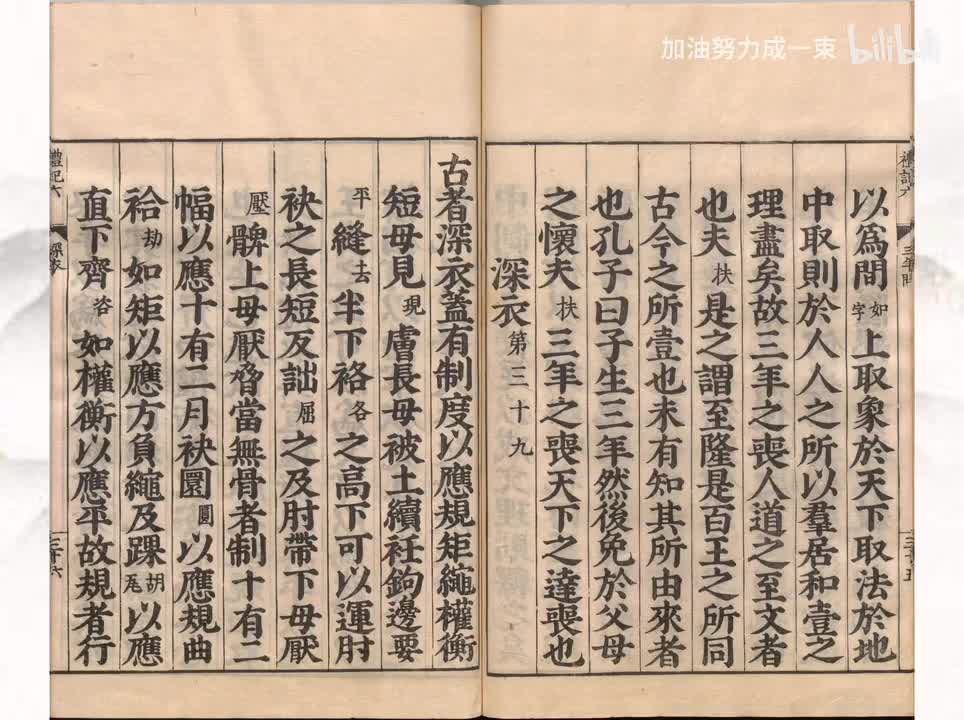 加油努力成一束 bilibili
以爲間如字上取象於天下取法於地
中取則於人人之所以羣居和壹之
理盡矣故三年之喪人道之至文者
也夫扶是之謂至隆是百王之所同
古今之所壹也未有知其所由來者
也孔子曰子生三年然後免於父母
之懷夫扶三年之喪天下之達喪也
深衣第三十九
古者深衣蓋有制度以應規矩繩權衡
短毋見現膚長毋被土續衽鉤邊要
平縫去半下袼各之高下可以運肘
袂之長短反詘屈之及肘帶下毋厭
壓髀上毋厭脅當無骨者制十有二
幅以應十有二月袂圜圓以應規曲
袷劫如矩以應方負繩及踝胡瓦以應
直下齊咨如權衡以應平故規者行
禮記六
深衣
三十六